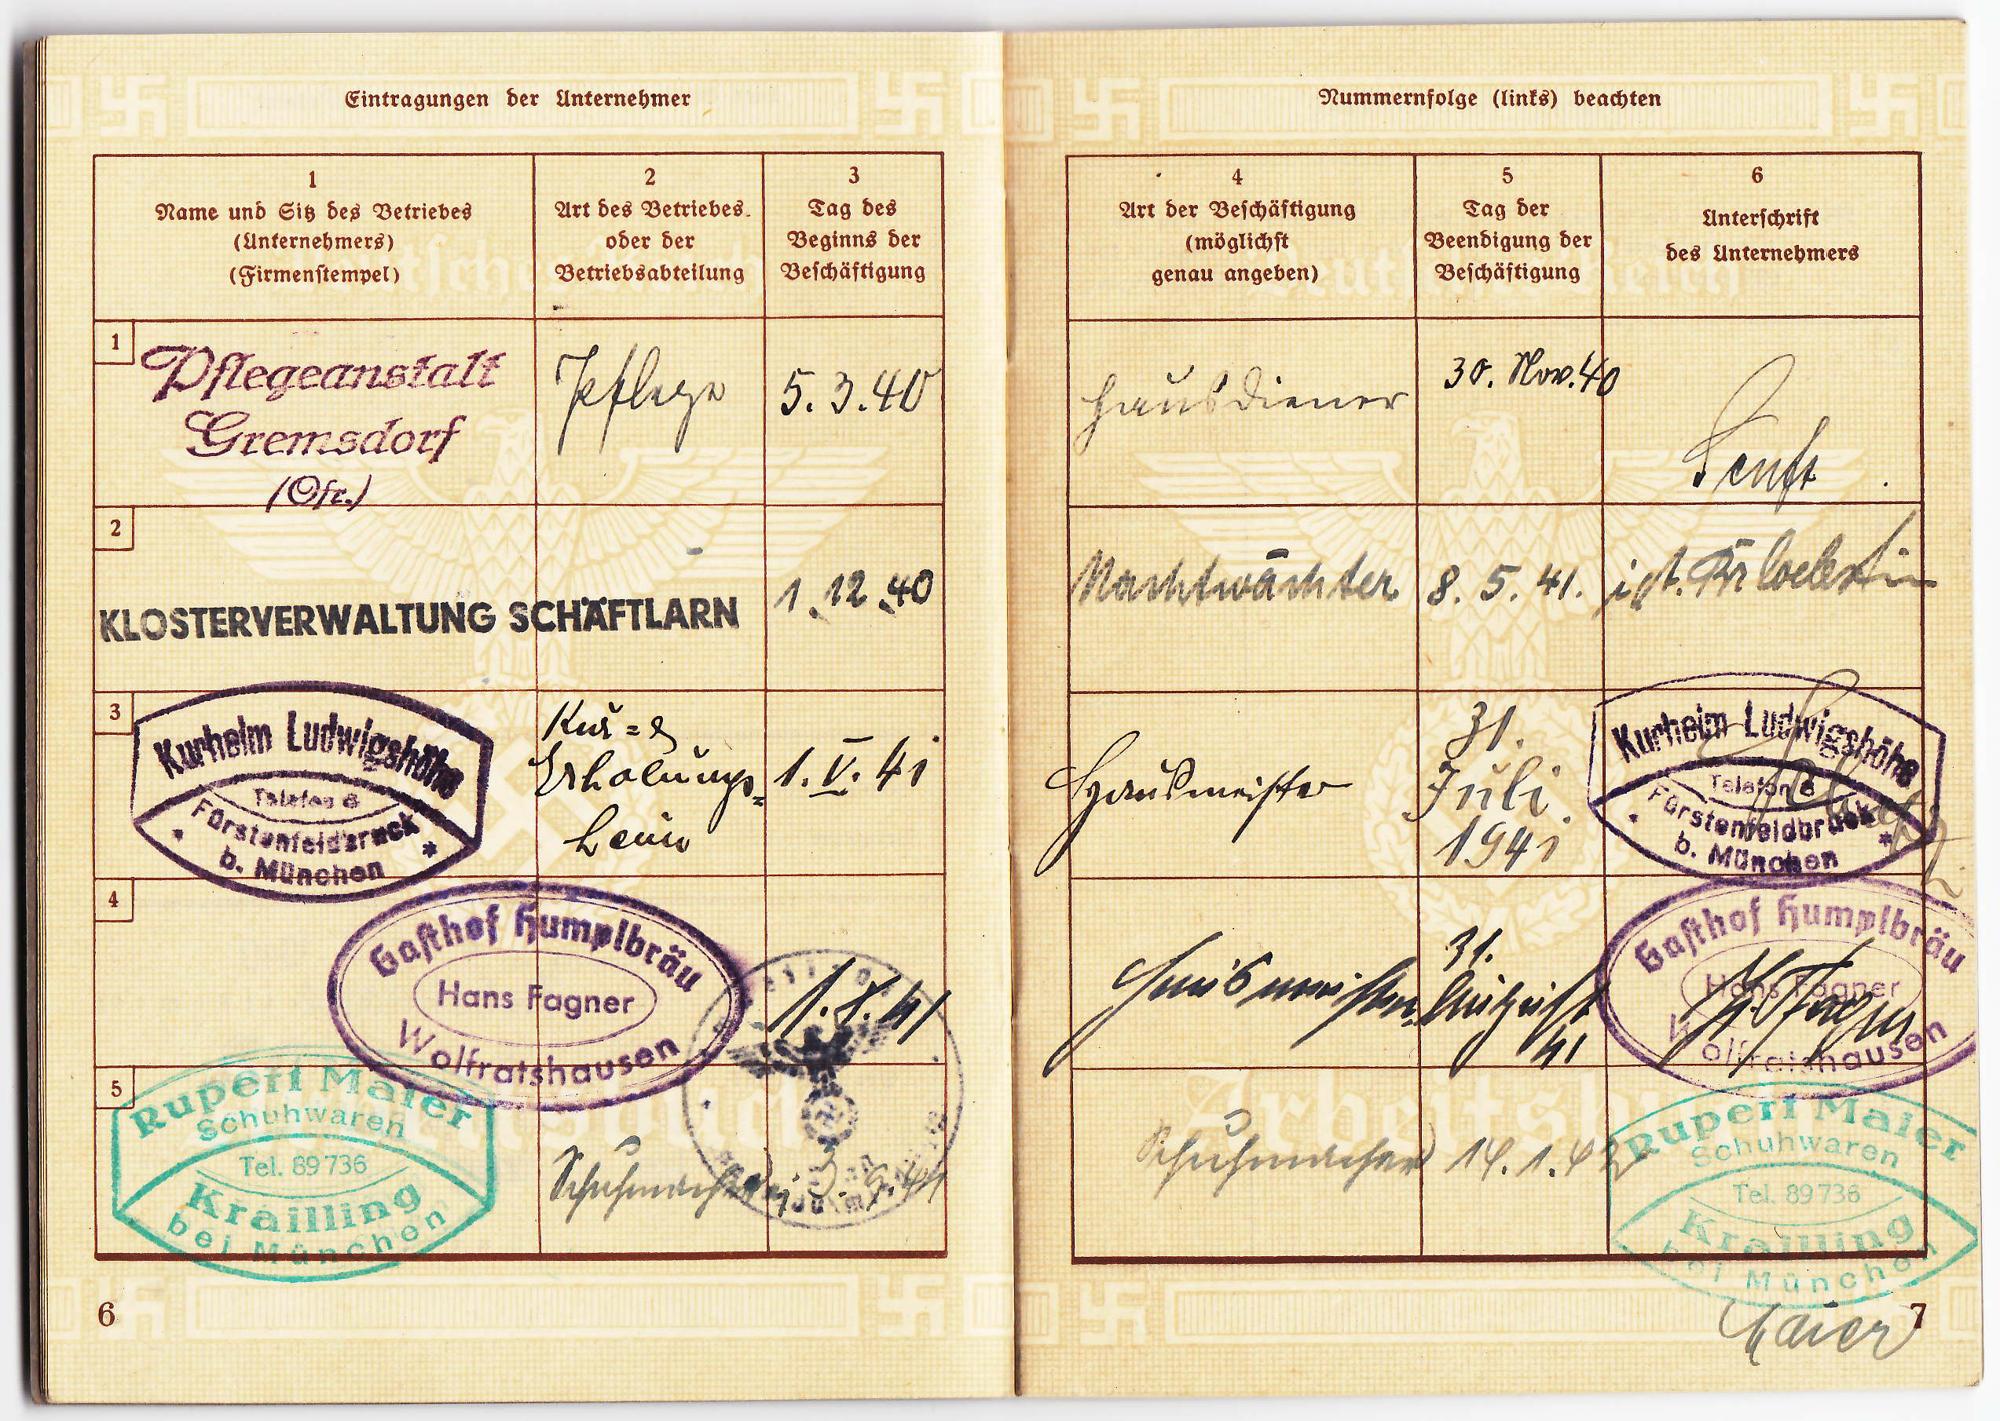 Eintragungen der Unternehmer
1
Name und Sitz des Betriebes
(Unternehmers)
(Firmenstempel)
2
Art des Betriebes
oder der
Betriebsabteilung
3
Tag des
Beginns der
Beschäftigung
1
Pflegeanstalt
Gremsdorf
(Ofr.)
Pflege
5.3.40
2
KLOSTERVERWALTUNG SCHÄFTLARN
1.12.40
3
Kurheim Ludwigshöhe
Telefon 8
Fürstenfeldbruck
b. München
Kur= &
Erholungs=
heim
1.V.41
4
Gasthof Humplbräu
Hans Fagner
Wolfratshausen
5
Rupert Maier
Schuhwaren
Tel. 89736
Krailling
bei München
Schuhmacherei
6
Nummernfolge (links) beachten
4
Art der Beschäftigung
(möglichst
genau angeben)
5
Tag der
Beendigung der
Beschäftigung
6
Unterschrift
des Unternehmers
Hausdiener
30. Nov. 40
Senft
Nachtwächter
8.5.41.
Hausmeister
31.
Juli
1941
Kurheim Ludwigshöhe
Telefon 8
Fürstenfeldbruck
b. München
Hausmeister
31.
August
41
Gasthof Humplbräu
Hans Fagner
Wolfratshausen
H. Fagner
Schuhmacher
14.1.42
Rupert Maier
Schuhwaren
Tel. 89736
Krailling
bei München
Maier
7
Deutsches Reich
Arbeitsbuch